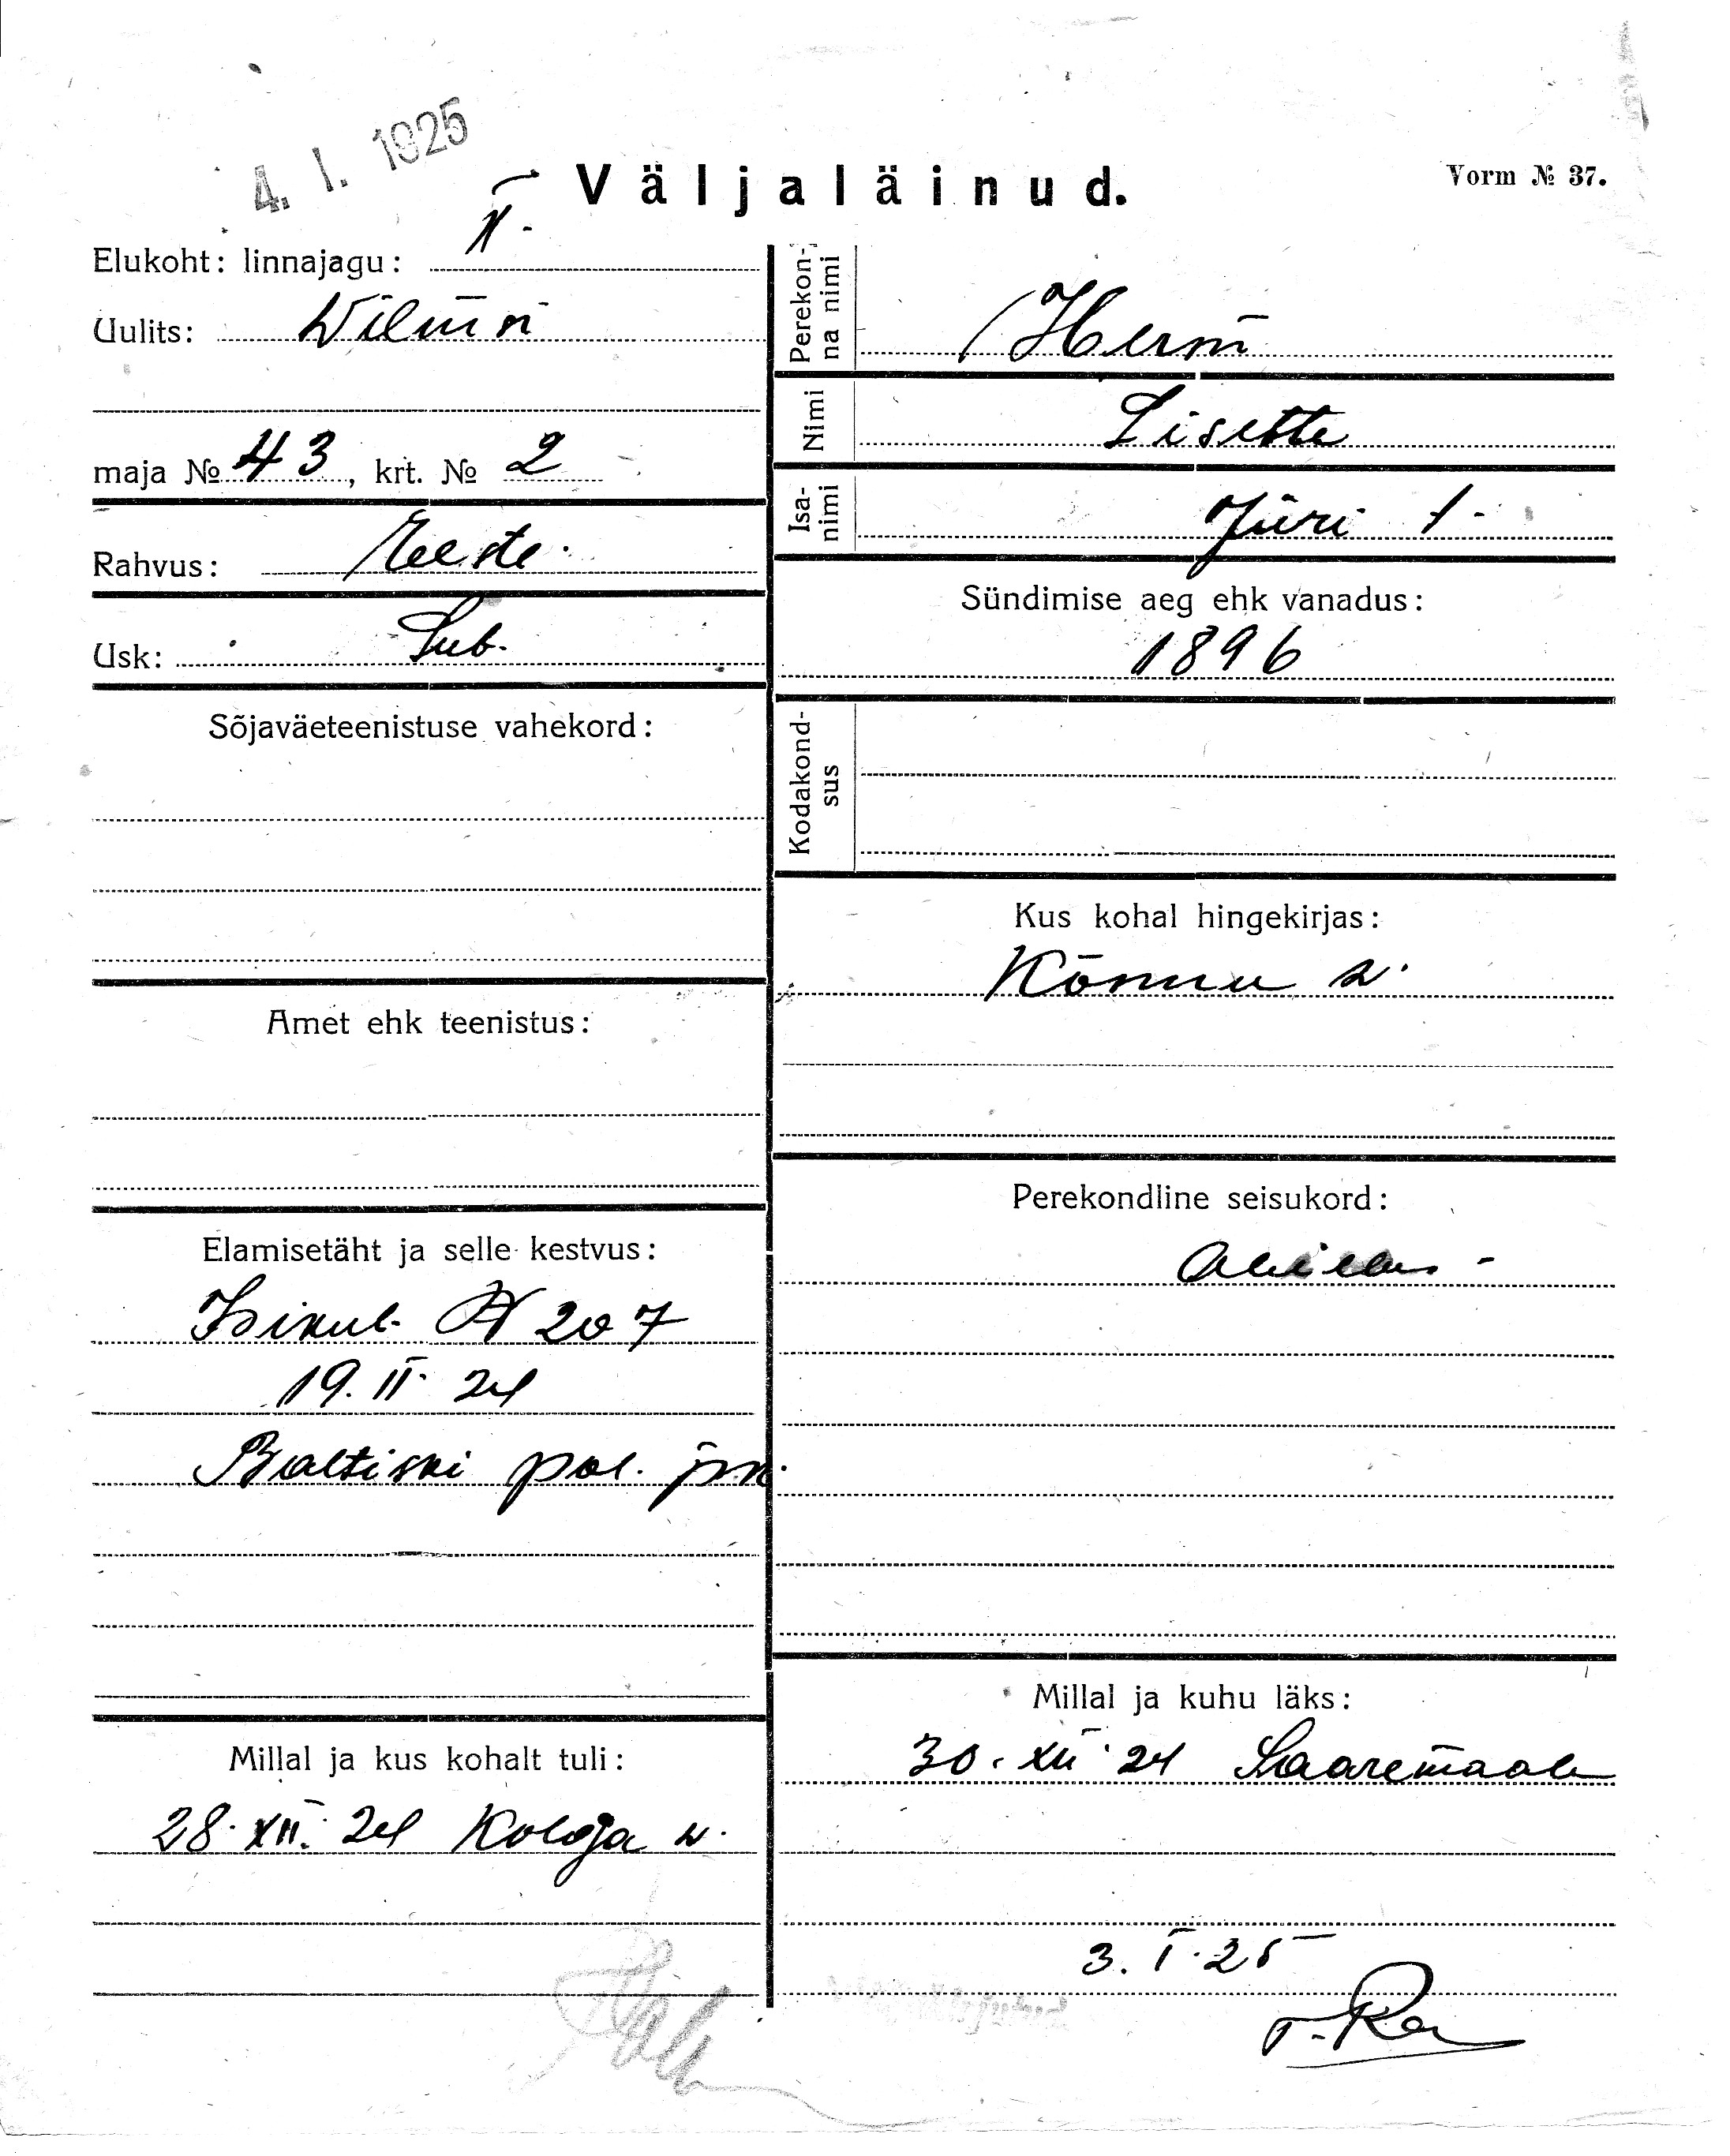 4. I. 1925
Väljaläinud.
Vorm № 37.
Elukoht: linnajagu:
Uulits: Wilmsi
maja № 43, krt. № 2
Rahvus: Eeste
Usk: Lut.
Sõjaväeteenistuse vahekord:
Amet ehk teenistus:
Elamisetäht ja selle kestvus:
Isikut. № 207
19. II. 24
Baltiski pol. jsk.
Millal ja kus kohalt tuli:
28. XII. 24 Kolga w.
Perekonna nimi
Herm
Nimi Lisette
Isanimi Jüri t.
Sündimise aeg ehk vanadus:
1896
Kodakondsus
Kus kohal hingekirjas:
Kõnnu w.
Perekondline seisukord:
Abielus
Millal ja kuhu läks:
30. XII. 24 Saaremaale
3. I. 25